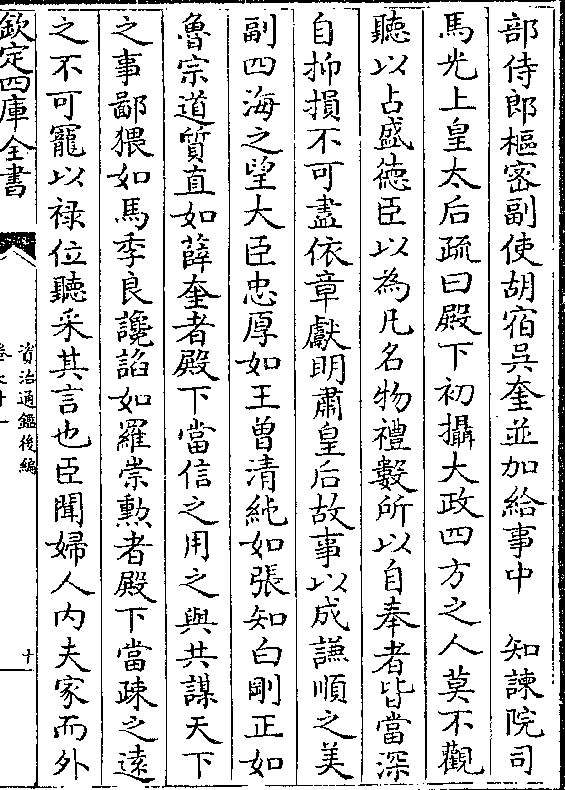 部侍郎樞密副使胡宿吳奎並加給事中　知諫院司
馬光上皇太后疏曰殿下初攝大政四方之人莫不觀
聽以占盛徳臣以為凡名物禮數所以自奉者皆當深
自抑損不可盡依章獻明肅皇后故事以成謙順之美
副四海之望大臣忠厚如王曽清純如張知白剛正如
魯宗道質直如薛奎者殿下當信之用之與共謀天下
之事鄙猥如馬季良讒諂如羅崇勲者殿下當疎之逺
之不可寵以禄位聽采其言也臣聞婦人内夫家而外
欽定四庫全書
資治通鑑後編
十